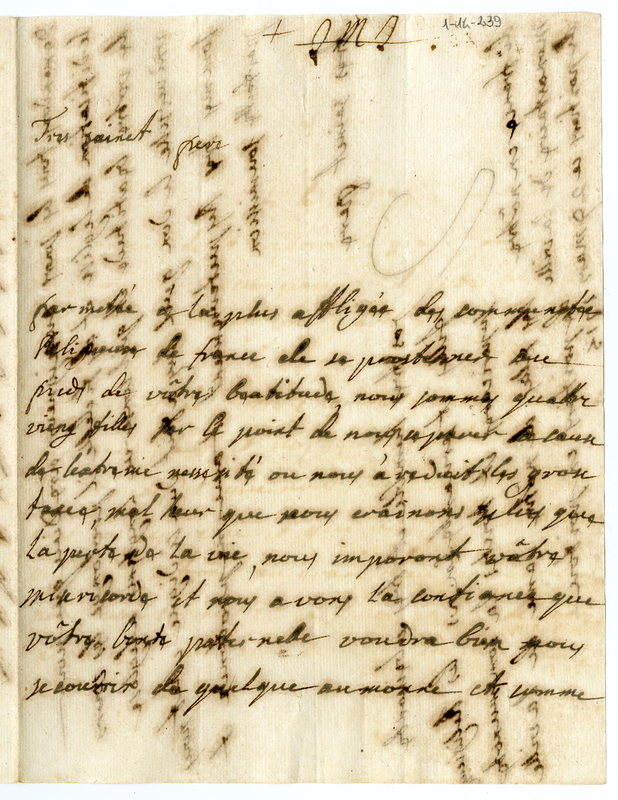 1-14-239
+ J M J
Tres sainct pere
permetté à la plus affligée des communotée
Religieuse de france de se prosterner aux
pieds de vôtre beatitude, nous sommes quattre
vieng filles sur le point de nous separer a cause
de lextreme nessesité ou nous à reduit les gros
taxes, mal heur que nous crainons plus que
la perte de la vie, nous imporont vôtre
misericorde et nous avons la confiance que
vôtre bonté paternelle voudra bien nous
secourir de quelque aumonne et comme